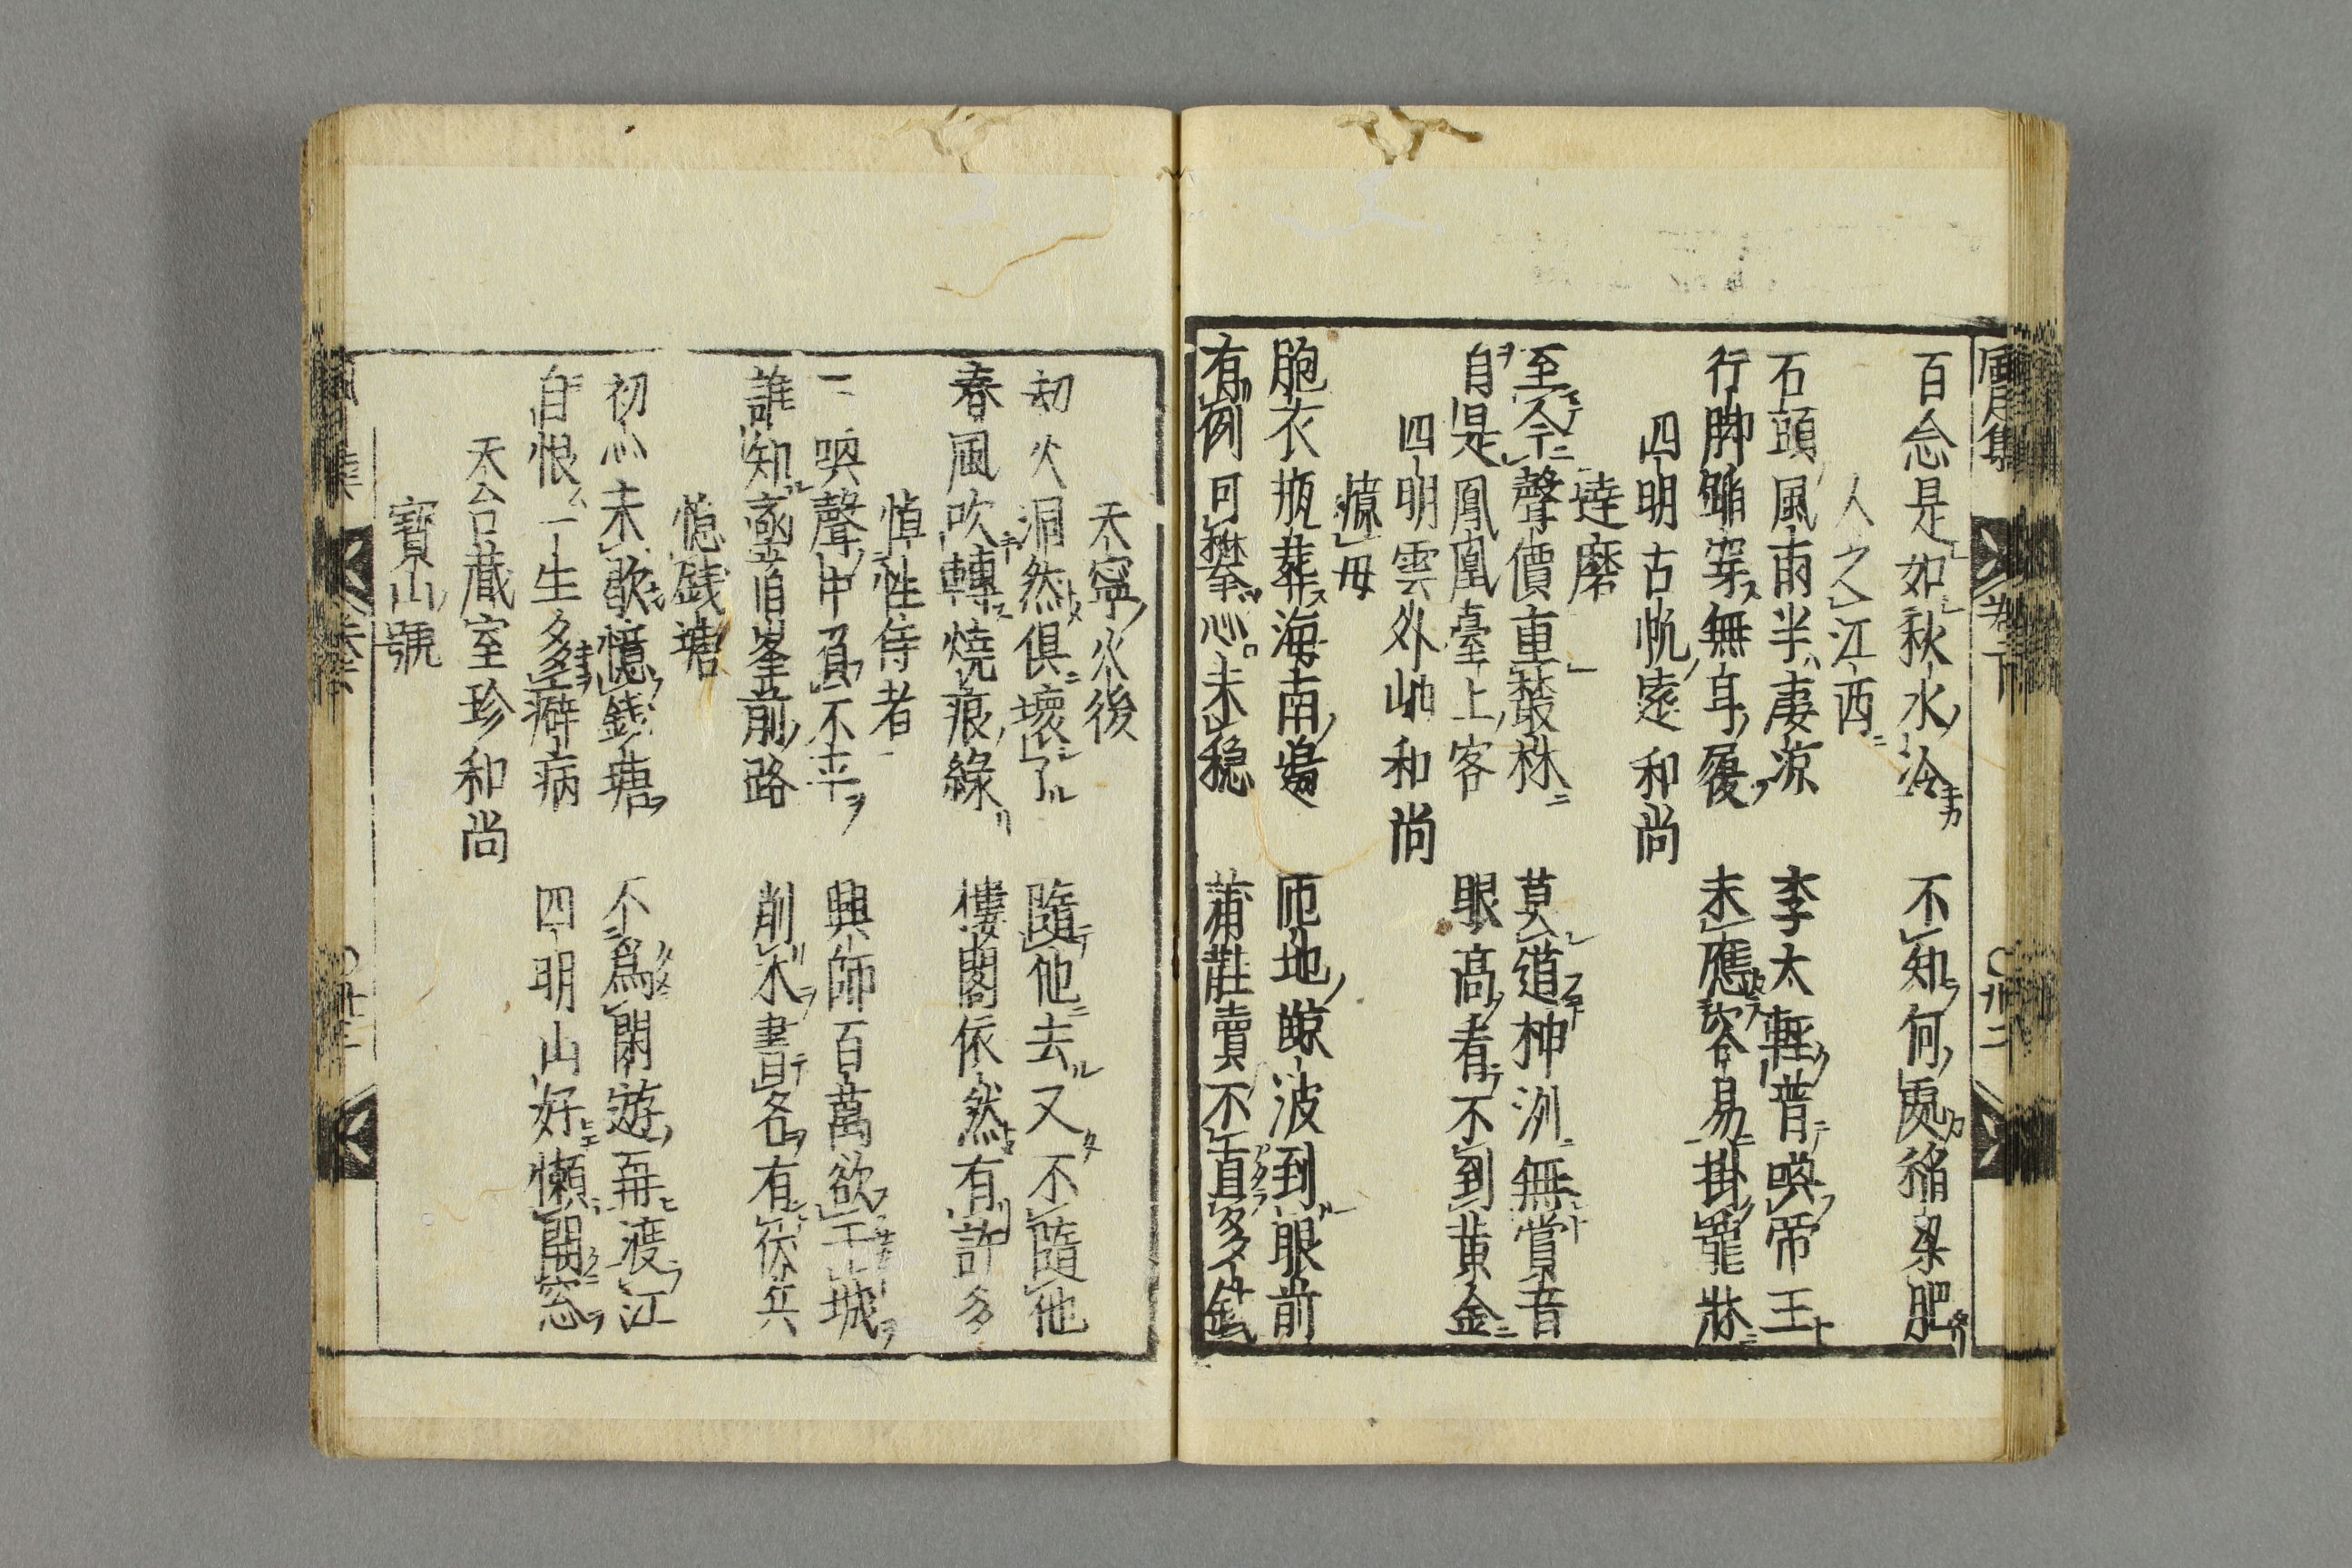 百念是如秋水冷　不知何處稻粱肥
人之江西
石頭風雨半凄凉　李太輕普喚帝王
行脚雖穿無耳履　未應容易掛寵牀
四明古帆遠和尚
達磨
至今聲價重叢林　莫道神洲無賞音
自是鳳凰臺上客　眼高看不到黄金
四明雲外岫和尚
憶母
胞衣瓶葬海南邊　匝地鯨波到眼前
有例可攀心未穏　蒲鞋賣不直多錢
天寧火後
劫火洞然俱壞了　隨他去又不隨他
春風吹轉燒痕緑　樓閣依然有許多
悼性侍者
一喚聲中負不平　興師百萬欲王城
誰知高峯前路　削木書名有伏兵
憶錢塘
初心未歇憶錢塘　不爲閑遊再渡江
自恨一生多癖病　四明山好懶開窓
天台藏室珍和尚
寶山號
卷下